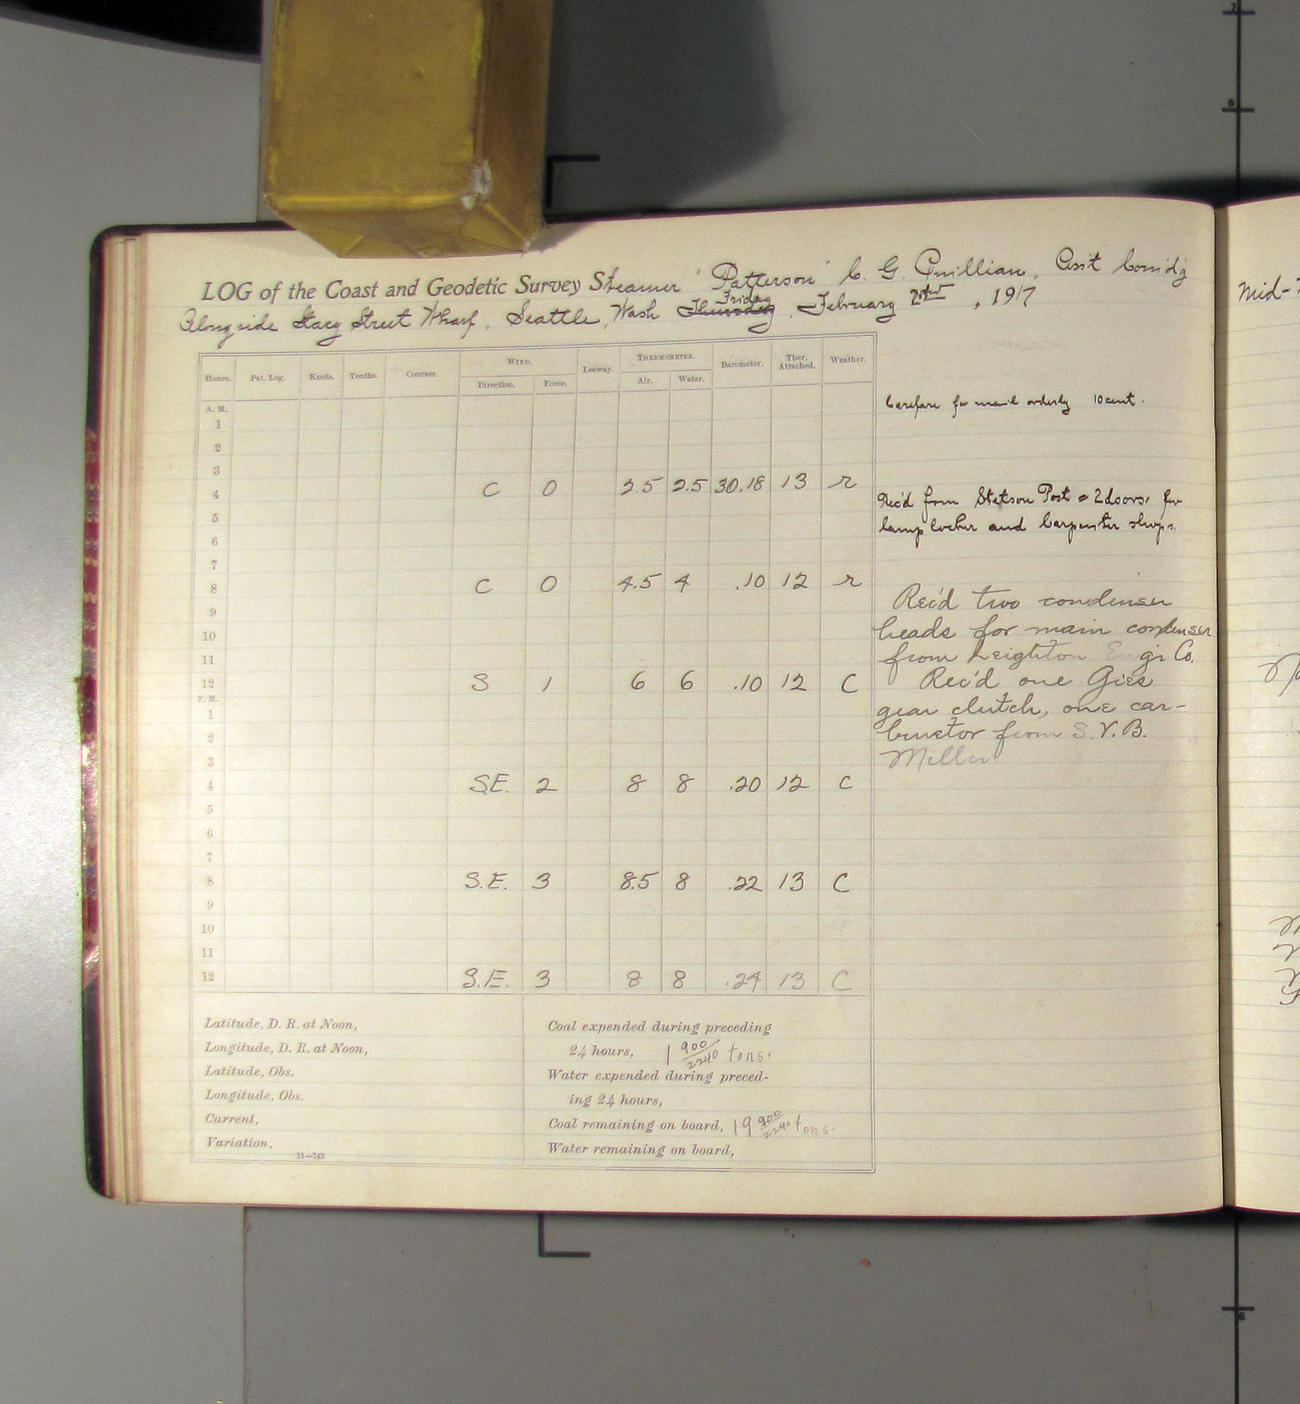 LOG of the Coast and Geodetic Survey Steamer "Patterson" C. G. Quillian, Ass't Com'd'g
Alongside Stacy Street Wharf, Seattle, Wash Thursday Friday, February 2nd, 1917
Hours. Pat. Log. Knots. Tenths. Courses. WIND. Leeway. THERMOMETER. Barometer. Ther. Attached. Weather.
Direction. Force. Air. Water.
A. M.
1
carfare for mail orderly 10 cent.
2
3
4 C 0 2.5 2.5 30.18 13 r
Rec'd from Stetson Post 2 doors, for
lamp locker and Carpenter shops.
5
6
7
8 C 0 4.5 4 .10 12 r
Rec'd two condenser
9
heads for main condenser
10
from Leighton Eng'r Co.
11
12 S 1 6 6 .10 12 C
Rec'd one Gies
P. M.
1
gear clutch, one car-
2
buretor from S. V. B.
3
Miller.
4 S.E. 2 8 8 .20 12 C
5
6
7
8 S.E. 3 8.5 8 .22 13 C
9
10
11
12 S.E. 3 8 8 .24 13 C
Latitude, D. R. at Noon,
Longitude, D. R. at Noon,
Latitude, Obs.
Longitude, Obs.
Current,
Variation,
11—743
Coal expended during preceding
24 hours, 1 900/2240 tons.
Water expended during preced-
ing 24 hours,
Coal remaining on board, 19 900/2240 tons.
Water remaining on board,
Mid-